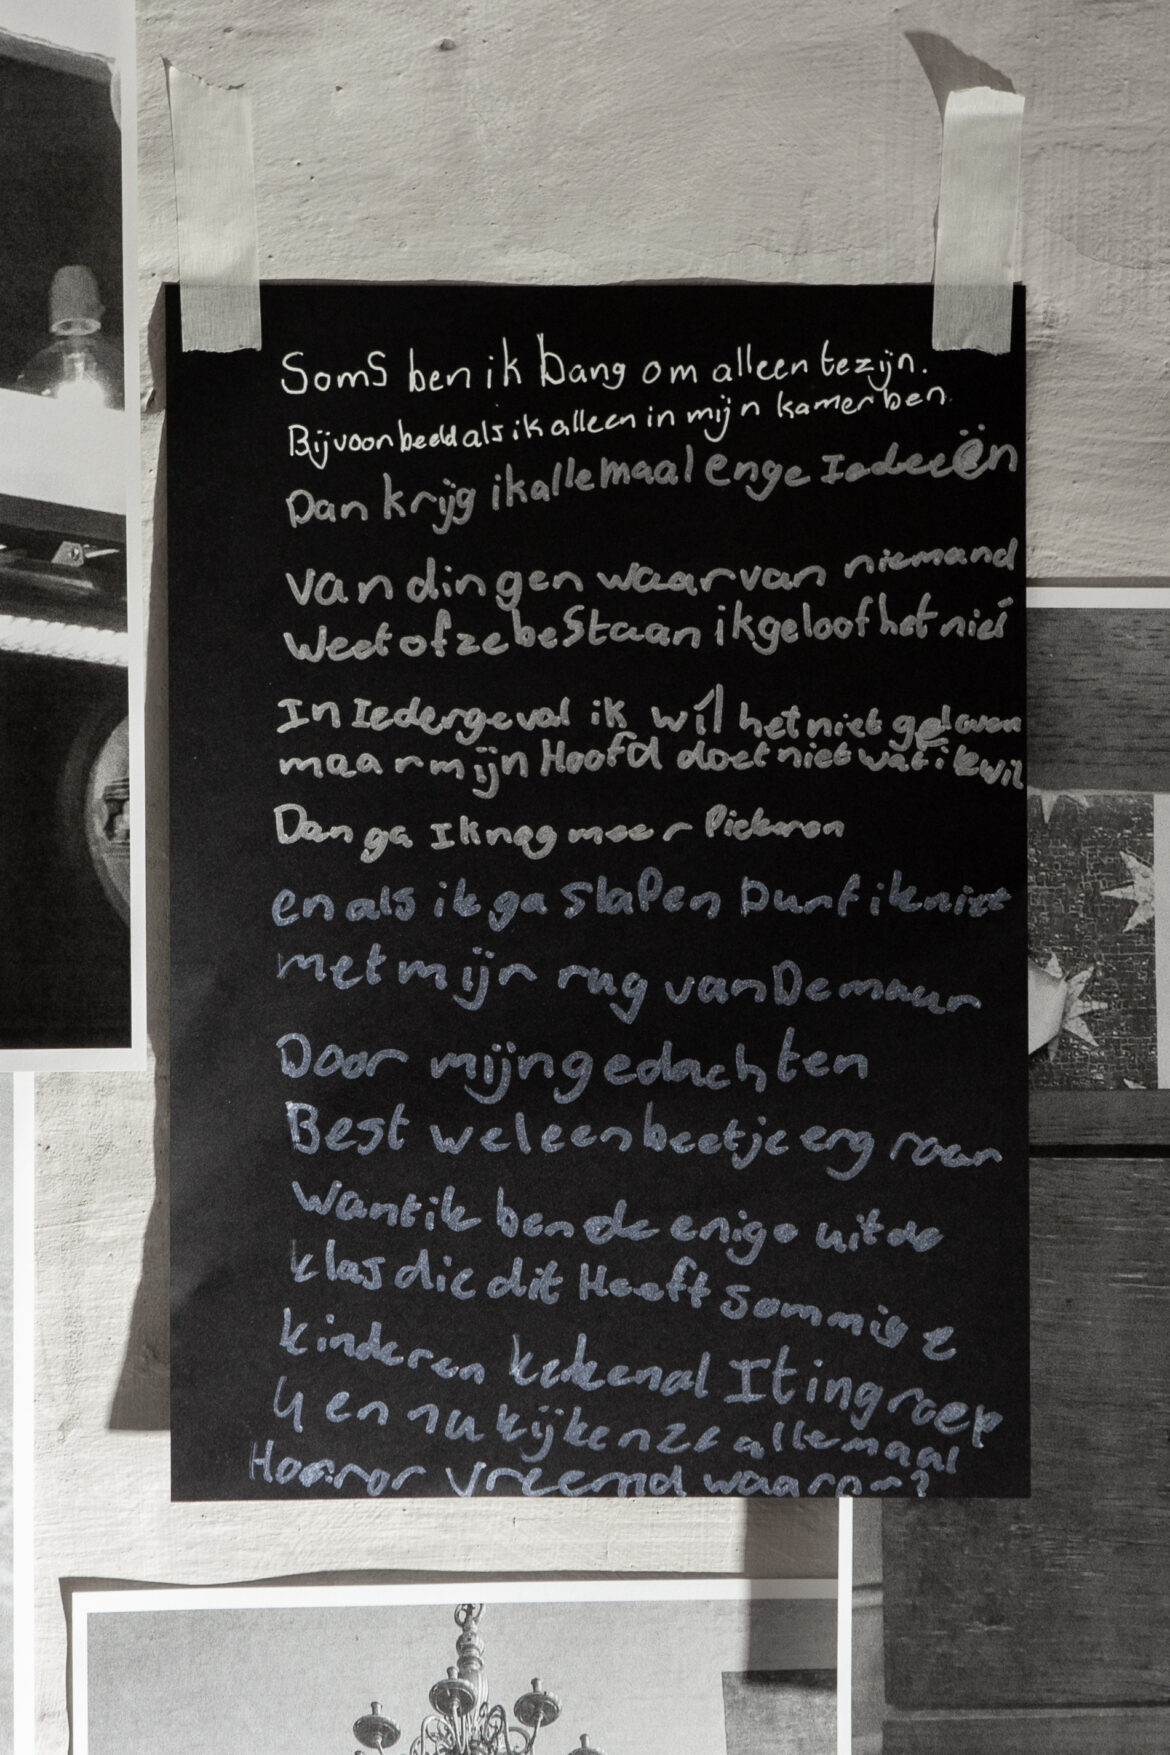 Soms ben ik bang om alleen tezijn.
Bijvoorbeeld als ik alleen in mijn kamer ben.
Dan krijg ik allemaal enge Iedeeën
van dingen waarvan niemand
Weet of ze bestaan ik geloof het niet
In Iedergeval ik wil het niet geloven
maar mijn Hoofd doet niet wat ik wil
Dan ga Ik nog meer Piekeren
en als ik ga slapen Durf ik niet
met mijn rug van De muur
Door mijn gedachten
Best wel een beetje erg raar
want ik ben de enige uit de
klas die dit Heeft sommige
kinderen keken al It in groep
4 en nu kijken ze allemaal
Horror vreemd waarom?